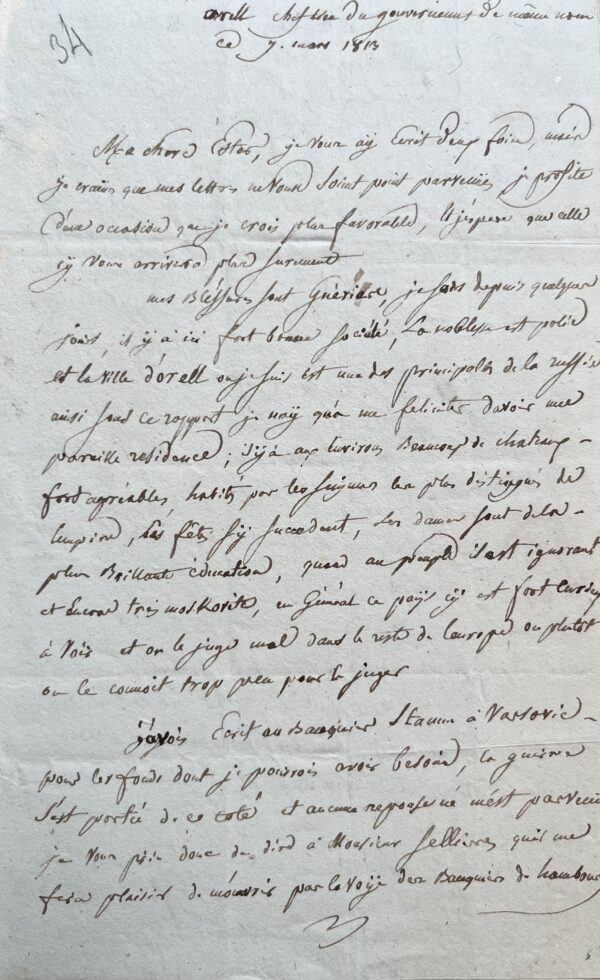 34
orell chef lieu du gouvernement de même nom
ce 7. mars 1813
Ma chere Ester, je vous aÿ Ecrit deux fois, mais
je crains que mes lettres ne vous soint point parvenues, je profite
d'une occasion que je crois plus favorable, Et j'espere que celle
cy vous arrivera plus surement
mes Bléssures sont Guéries, je suis depuis quelques
jours, il y à ici fort bonne société, La noblesse est polie
et la ville d'orell ou je suis est une des principales de la russie
ainsi sous ce rapport je naÿ qu'a me feliciter davoir une
pareille residence; il y à aux Environs Beaucoup de chateaux
fort agréables, habités par les seigneurs les plus distingués de
lempire, Les fêtes s'y succedent, Les dames sont de la
plus Brillante éducation, quand au peuple il est ignorant
et Encore tres moskovite, en Général ce païs cy est fort curieux
à voir et on le juge mal dans le reste de leurope ou plustot
on le connoit trop peu pour le juger
j'avois Ecrit au Banquier à Varsovie
pour les fonds dont je pourrois avoir besoin, la guerre
s'est portée de ce coté et aucune reponse ne m'est parvenue
je vous prie donc de dire à Monsieur Sellieres quil me
fera plaisir de m'ouvrir par la voÿe des Banquiers de hambourg